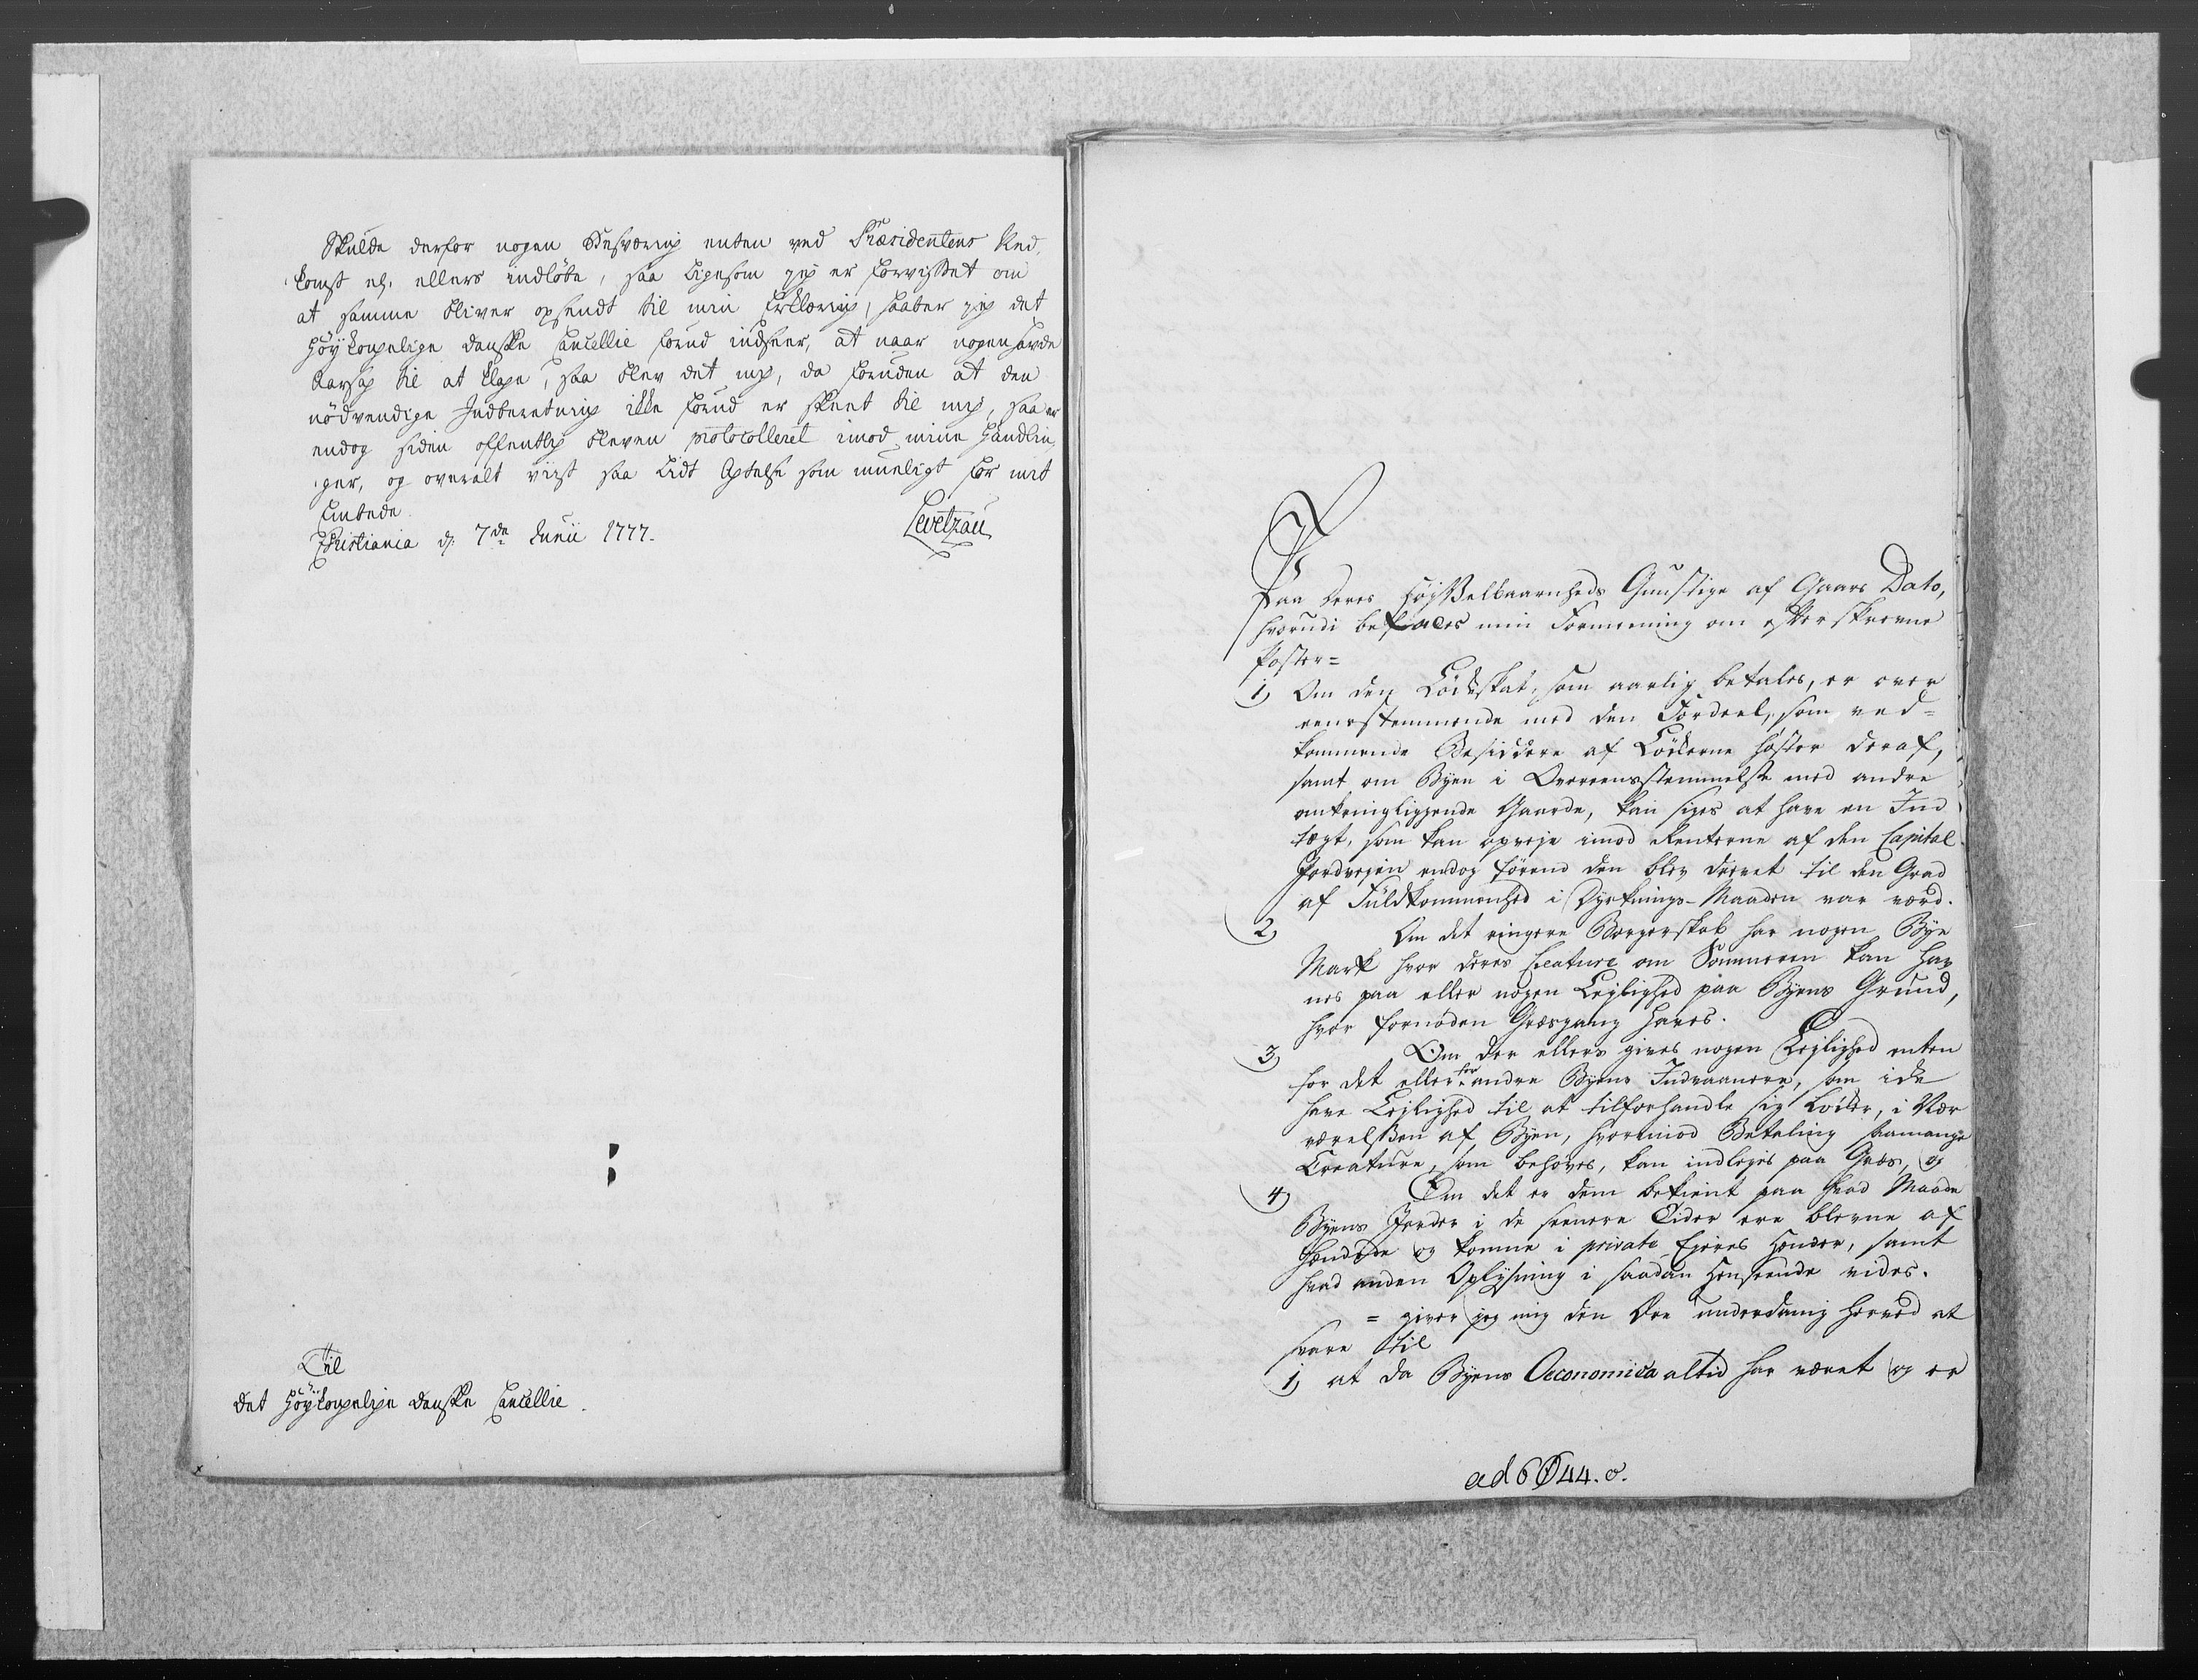 Skulde derfor nogen Besværing enten ved Præsidentens Ned¬
komst el. ellers indløbe, saa ligesom jeg er forvisset om
at samme bliver opsendt til min Erklæring, haaber jeg det
Høykongelige danske Cancellie forud indseer, at naar nogen havde
Aarsag til at klage, saa blev det mig, da foruden at den
nødvendige Indberetning ikke forud er skeet til mig, saa er
endog siden offentlig bleven protocolleret imod mine Handlin¬
ger, og overalt viist saa lidt Agtelse som mueligt for mit
Embede.
Christiania d: 7de Junii 1777.
Levetzau
Til
det Høykongelige danske Cancellie.
Paa Deres HøjVelbaarenheds Gunstige af Gaars Dato,
hvorudi befales min Formeening om efterskrevne
Poster=
1) Om den Løkkeskat, som aarlig betales, er over
eensstemmende med den Fordeel, som ved=
kommende Besiddere af Løkkerne høster deraf,
samt om Byen i Overeensstemmelse med andre
omkringliggende Gaarde, kan siges at have en Ind
tægt, som kan opveje imod Renterne af den Capital
Jordvejen endog førend den blev drevet til den Grad
af Fuldkommenhed i Dyrknings-Maaden var værd.
2) Om det ringere Borgerskab har nogen Bye
Mark hvor deres Creature om Sommeren kan hav
nes paa eller nogen Lejlighed paa Byens Grund,
hvor fornøden Græsgang haves.
3) Om der ellers gives nogen Lejlighed enten
for det eller for andre Byens Indvaanere, som ikke
have Lejlighed til at tilforhandle sig Løkker, i Nær
værelsen af Byen, hvorimod Betaling saamange
Creature, som behøves, kan indlejes paa Græs, og
4) Om det er dem bekient paa hvad Maade
Byens Jorder i de seenere Tider ere blevne af
hændede og komne i private Ejeres Hænder, samt
hvad anden Oplysning i saadan Henseende vides.
= giver jeg mig den Ære underdanig herved at
svare til
1) at da Byens Oeconomica altid har været og er
ad 6044. o.